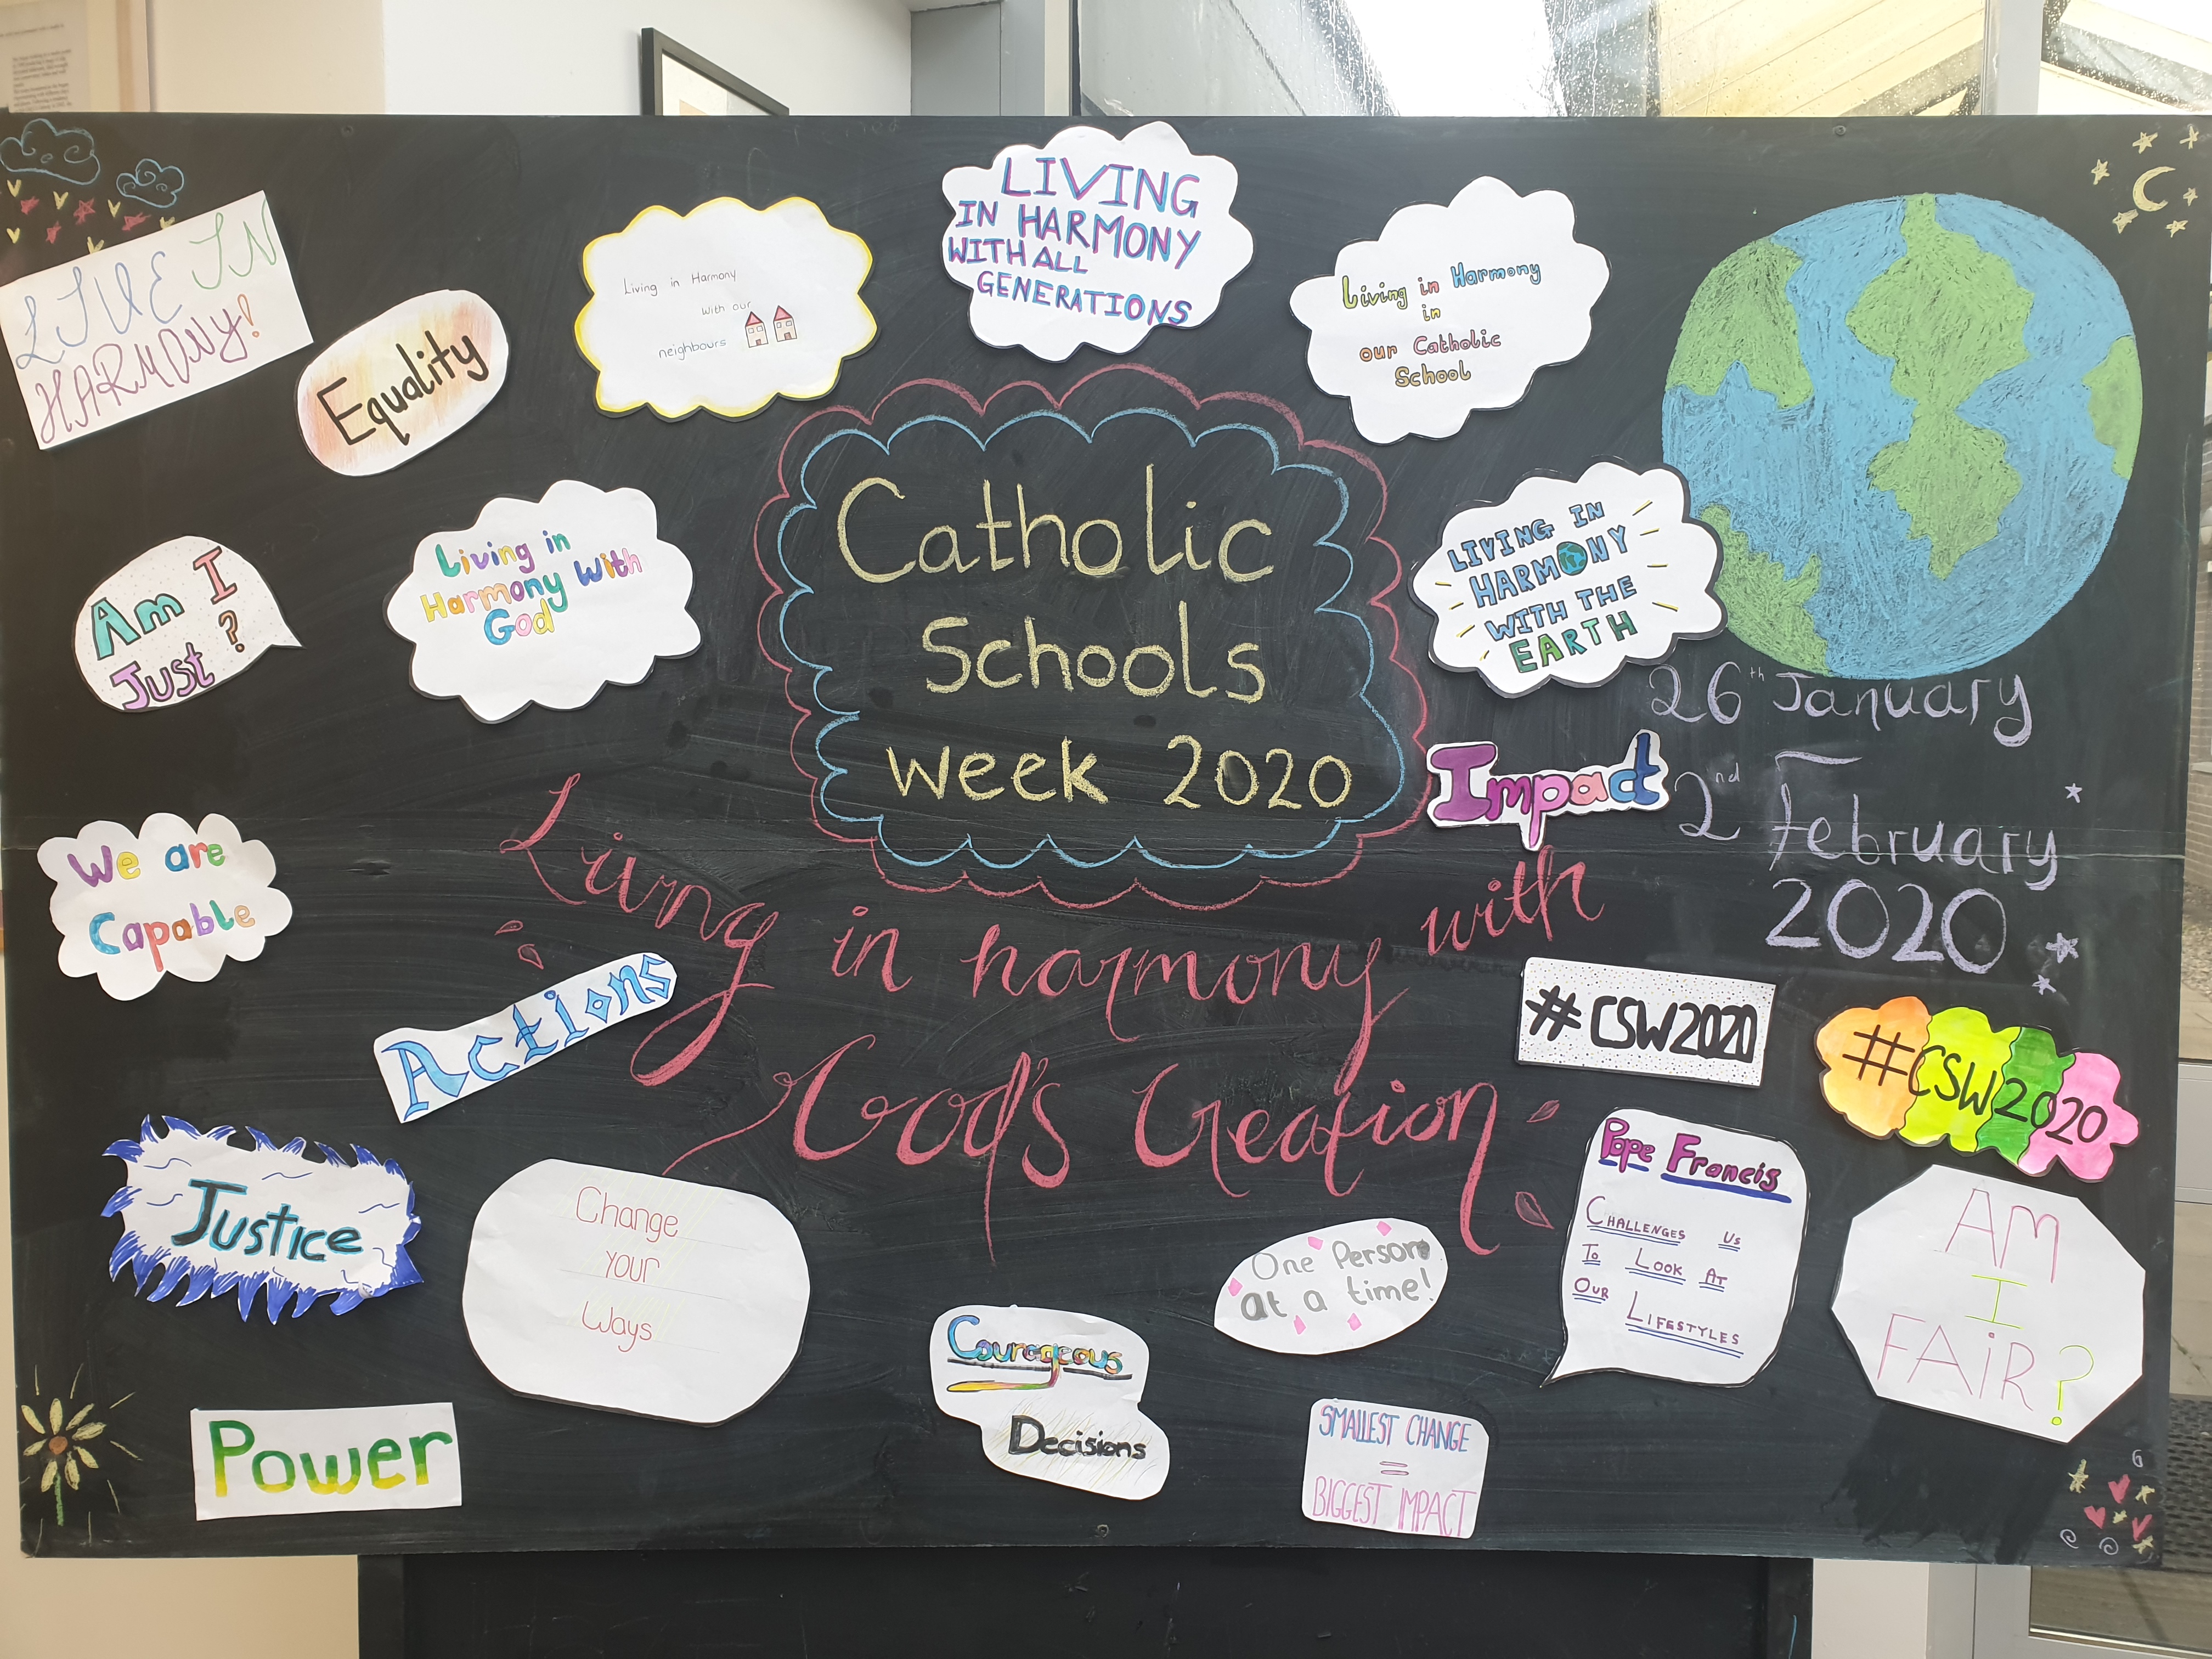 LIVE IN
HARMONY!
Equality
Living in Harmony
With our
neighbours
LIVING
IN HARMONY
WITH ALL
GENERATIONS
Living in Harmony
in
our Catholic
School
Am I
Just ?
Living in
Harmony With
God
Catholic
Schools
Week 2020
LIVING IN
HARMONY
WITH THE
EARTH
26th January
–
2nd February
2020
Impact
We are
Capable
Living in harmony with
God's Creation
Actions
#CSW2020
#CSW2020
Justice
Change
your
Ways
One Person
at a time!
Pope Francis
CHALLENGES US
TO LOOK AT
OUR LIFESTYLES
AM
I
FAiR?
Courageous
Decisions
Power
SMALLEST CHANGE
=
BIGGEST IMPACT